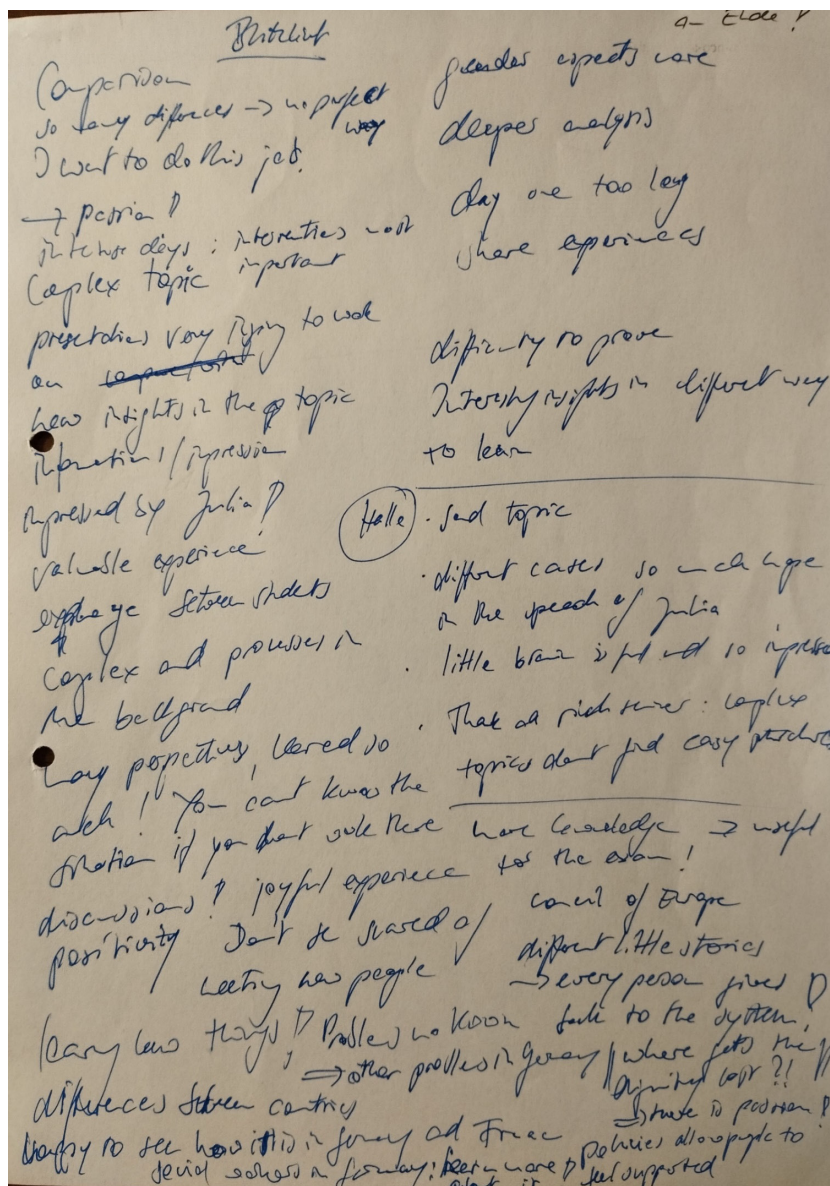 Blitzlicht
Comparison
so many differences → no perfect way
I want to do this job.
→ passion!
intense days : interventions most important
Complex topic
presentations very trying to work
on
new insights in the topic
informations / impression
impressed by Julia!
valuable experience!
exchange between students
complex and processes in
the background
many perspectives, learned so
much! You cant know the
situation if you dont work there
discussions! joyful experience
positivity Don't be scared of
meeting new people
learn new things! Problems no Know
⇒ other problems in Germany
differences between countries
happy to see how it is in Germany and France
social workers in Germany: learn more!
gender aspects more
deeper analysis
day one too long
share experiences
difficulty to prove
Interesting insights in different way
to learn
Halle
· sad topic
· different cases so much hope
in the speech of Julia
· little brain is full and so impressed
· Thank all : complex
topics dont find easy
more knowledge → useful
for the exam!
council of Europe
different little stories
→ every person gives
back to the system!
where gets the
dignity lost?!
⇒ there is passion!
policies allow people to
feel supported